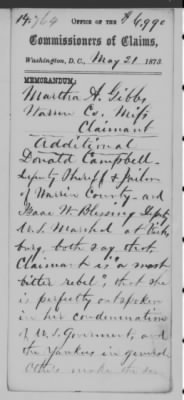 14,769
OFFICE OF THE $6,990
Commissioners of Claims,
Washington, D.C., May 21, 1873.
MEMORANDUM:
Martha A. Gibby
Warren Co. Miss
Claimant
Additional
Donald Campbell -
deputy Sheriff &
of Warren County - and
Isaac W Blessing deputy
U.S. Marshal at Vicks
burg, both say that
Claimant is "a most
bitter rebel", that she
is perfectly outspoken
in her condemnation
of U.S. Government, and
the Yankees in general
make the